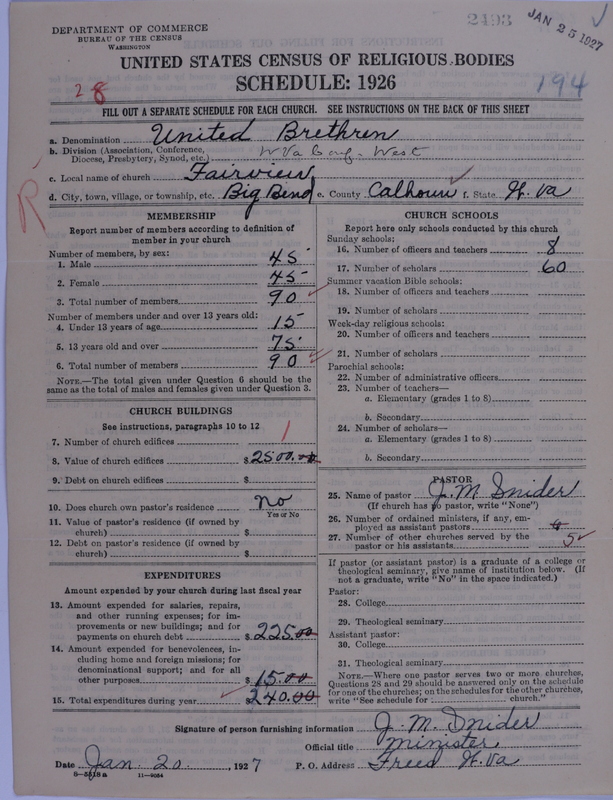 DEPARTMENT OF COMMERCE
BUREAU OF THE CENSUS
WASHINGTON
2493
JAN 25 1927
UNITED STATES CENSUS OF RELIGIOUS BODIES
SCHEDULE: 1926
28
194
FILL OUT A SEPARATE SCHEDULE FOR EACH CHURCH. SEE INSTRUCTIONS ON THE BACK OF THIS SHEET
a. Denomination United Brethren
b. Division (Association, Conference, Diocese, Presbytery, Synod, etc.) W Va Conf. West
c. Local name of church Fairview
d. City, town, village, or township, etc. Big Bend e. County Calhoun f. State W. Va
R
MEMBERSHIP
Report number of members according to definition of
member in your church
Number of members, by sex:
1. Male 45
2. Female 45
3. Total number of members 90
Number of members under and over 13 years old:
4. Under 13 years of age 15
5. 13 years old and over 75
6. Total number of members 90
NOTE.—The total given under Question 6 should be
same as the total of males and females given under Question 3.
CHURCH BUILDINGS
See instructions, paragraphs 10 to 12
7. Number of church edifices 1
8. Value of church edifices $2500.00
9. Debt on church edifices $
10. Does church own pastor's residence no
Yes or No
11. Value of pastor's residence (if owned by
church) $
12. Debt on pastor's residence (if owned by
church) $
EXPENDITURES
Amount expended by your church during last fiscal year
13. Amount expended for salaries, repairs,
and other running expenses; for im-
provements or new buildings; and for
payments on church debt $225.00
14. Amount expended for benevolences, in-
cluding home and foreign missions; for
denominational support; and for all
other purposes $15.00
15. Total expenditures during year $240.00
CHURCH SCHOOLS
Report here only schools conducted by this church
Sunday schools:
16. Number of officers and teachers 8
17. Number of scholars 60
Summer vacation Bible schools:
18. Number of officers and teachers
19. Number of scholars
Week-day religious schools:
20. Number of officers and teachers
21. Number of scholars
Parochial schools:
22. Number of administrative officers
23. Number of teachers—
a. Elementary (grades 1 to 8)
b. Secondary
24. Number of scholars—
a. Elementary (grades 1 to 8)
b. Secondary
PASTOR
25. Name of pastor J. M. Snider
(If church has no pastor, write "None")
26. Number of ordained ministers, if any, em-
ployed as assistant pastors
27. Number of other churches served by the
pastor or his assistants 5
If pastor (or assistant pastor) is a graduate of a college or
theological seminary, give name of institution below. (If
not a graduate, write "No" in the space indicated.)
Pastor:
28. College
29. Theological seminary
Assistant pastor:
30. College
31. Theological seminary
NOTE.—Where one pastor serves two or more churches,
Questions 28 and 29 should be answered only on the schedule
for one of the churches; on the schedules for the other churches,
write "See schedule for church."
Signature of person furnishing information J. M. Snider
Official title Minister
Date Jan. 20, 1927 P. O. Address Freed W. Va
8—5518a 11—9084